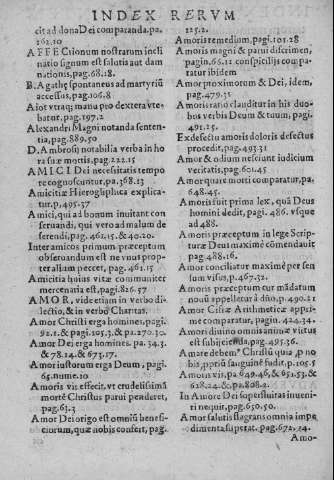 INDEX RERVM
cit ad dona Dei comparanda, pa.
162.10
AFFECtionum nostrarum incli
natio signum est salutis aut dam
nationis, pag. 68.18.
B. Agathę spontaneus ad martyriū
accessus, pag. 106.8
Aiot vtraq; manu pro dextera vte
batur, pag. 197.2
Alexandri Magni notanda senten
tia, pag. 889.50
D. Ambrosij notabilia verba in ho
ra suæ mortis, pag. 222.15
AMICI Dei necessitatis tempo
re cognoscuntur, pa. 368.23
Amicitiæ Hieroglyphica explica
tur, p, 495.37
Amici, qui ad bonum inuitant con
seruandi, qui vero ad malum de
serendi, pag. 462.15. & 40.20.
Inter amicos primum præceptum
obseruandum est ne vnus prop-
ter alium peccet, pag. 461.15
Amicitia huius vitæ communiter
mercenaria est, pagi. 826.57
AMOR, vide etiam in verbo di-
lectio, & in verbo Charitas.
Amor Christi erga homines, pagi.
92.1. & pagi. 105.3. & pa. 270.30.
Amor Dei erga homines. pa. 34.3.
& 78.14. & 673.17.
Amor iustorum erga Deum, pagi.
65. nume. 10
Amoris vis effecit, vt crudelissimā
mortē Christus parui penderet,
pag. 63.3
Amor Dei origo est omniū benefi-
ciorum, quæ nobis confert, pag.
125.2.
Amoris remedium, pagi. 101.28
Amoris magni & parui discrimen,
pagin. 66.22 conspicilijs compa-
ratur ibidem
Amor proximorum & Dei, idem,
pag. 479.32
Amoris ratio clauditur in his duo-
bus verbis Deum & tuum, pagi.
491.25.
Ex defectu amoris doloris defectus
procedit, pag. 493.31
Amor & odium nesciunt iudicium
veritatis, pag. 601.45
Amor quare morti comparatur, pa.
648.45.
Amoris fuit prima lex, quā Deus
homini dedit, pagi. 486. vsque
ad 488.
Amoris præceptum in lege Scriptu
ræ Deus maxime cōmendauit
pag. 488.16.
Amor conciliatur maxime per sen
sum visus, p. 467.32.
Amoris præceptum cur mādatum
nouū appelletur à dño, p. 490.21
Amor Cifræ Arithmeticæ appri-
me comparatur, pagin. 424.34.
Amori diuino omnis animæ virtus
est subijcienda, pag. 495.36.
nobis, ꝓpriū sanguinē fudit, p. 105.5
Amoris vis, pa 649.46, & 651.53. &
628.24. &, pa. 808.2.
In Amore Dei superfluitas inueni-
ri nequit, pag. 650.50.
dimenta superat. pag. 672.24.
Amo-